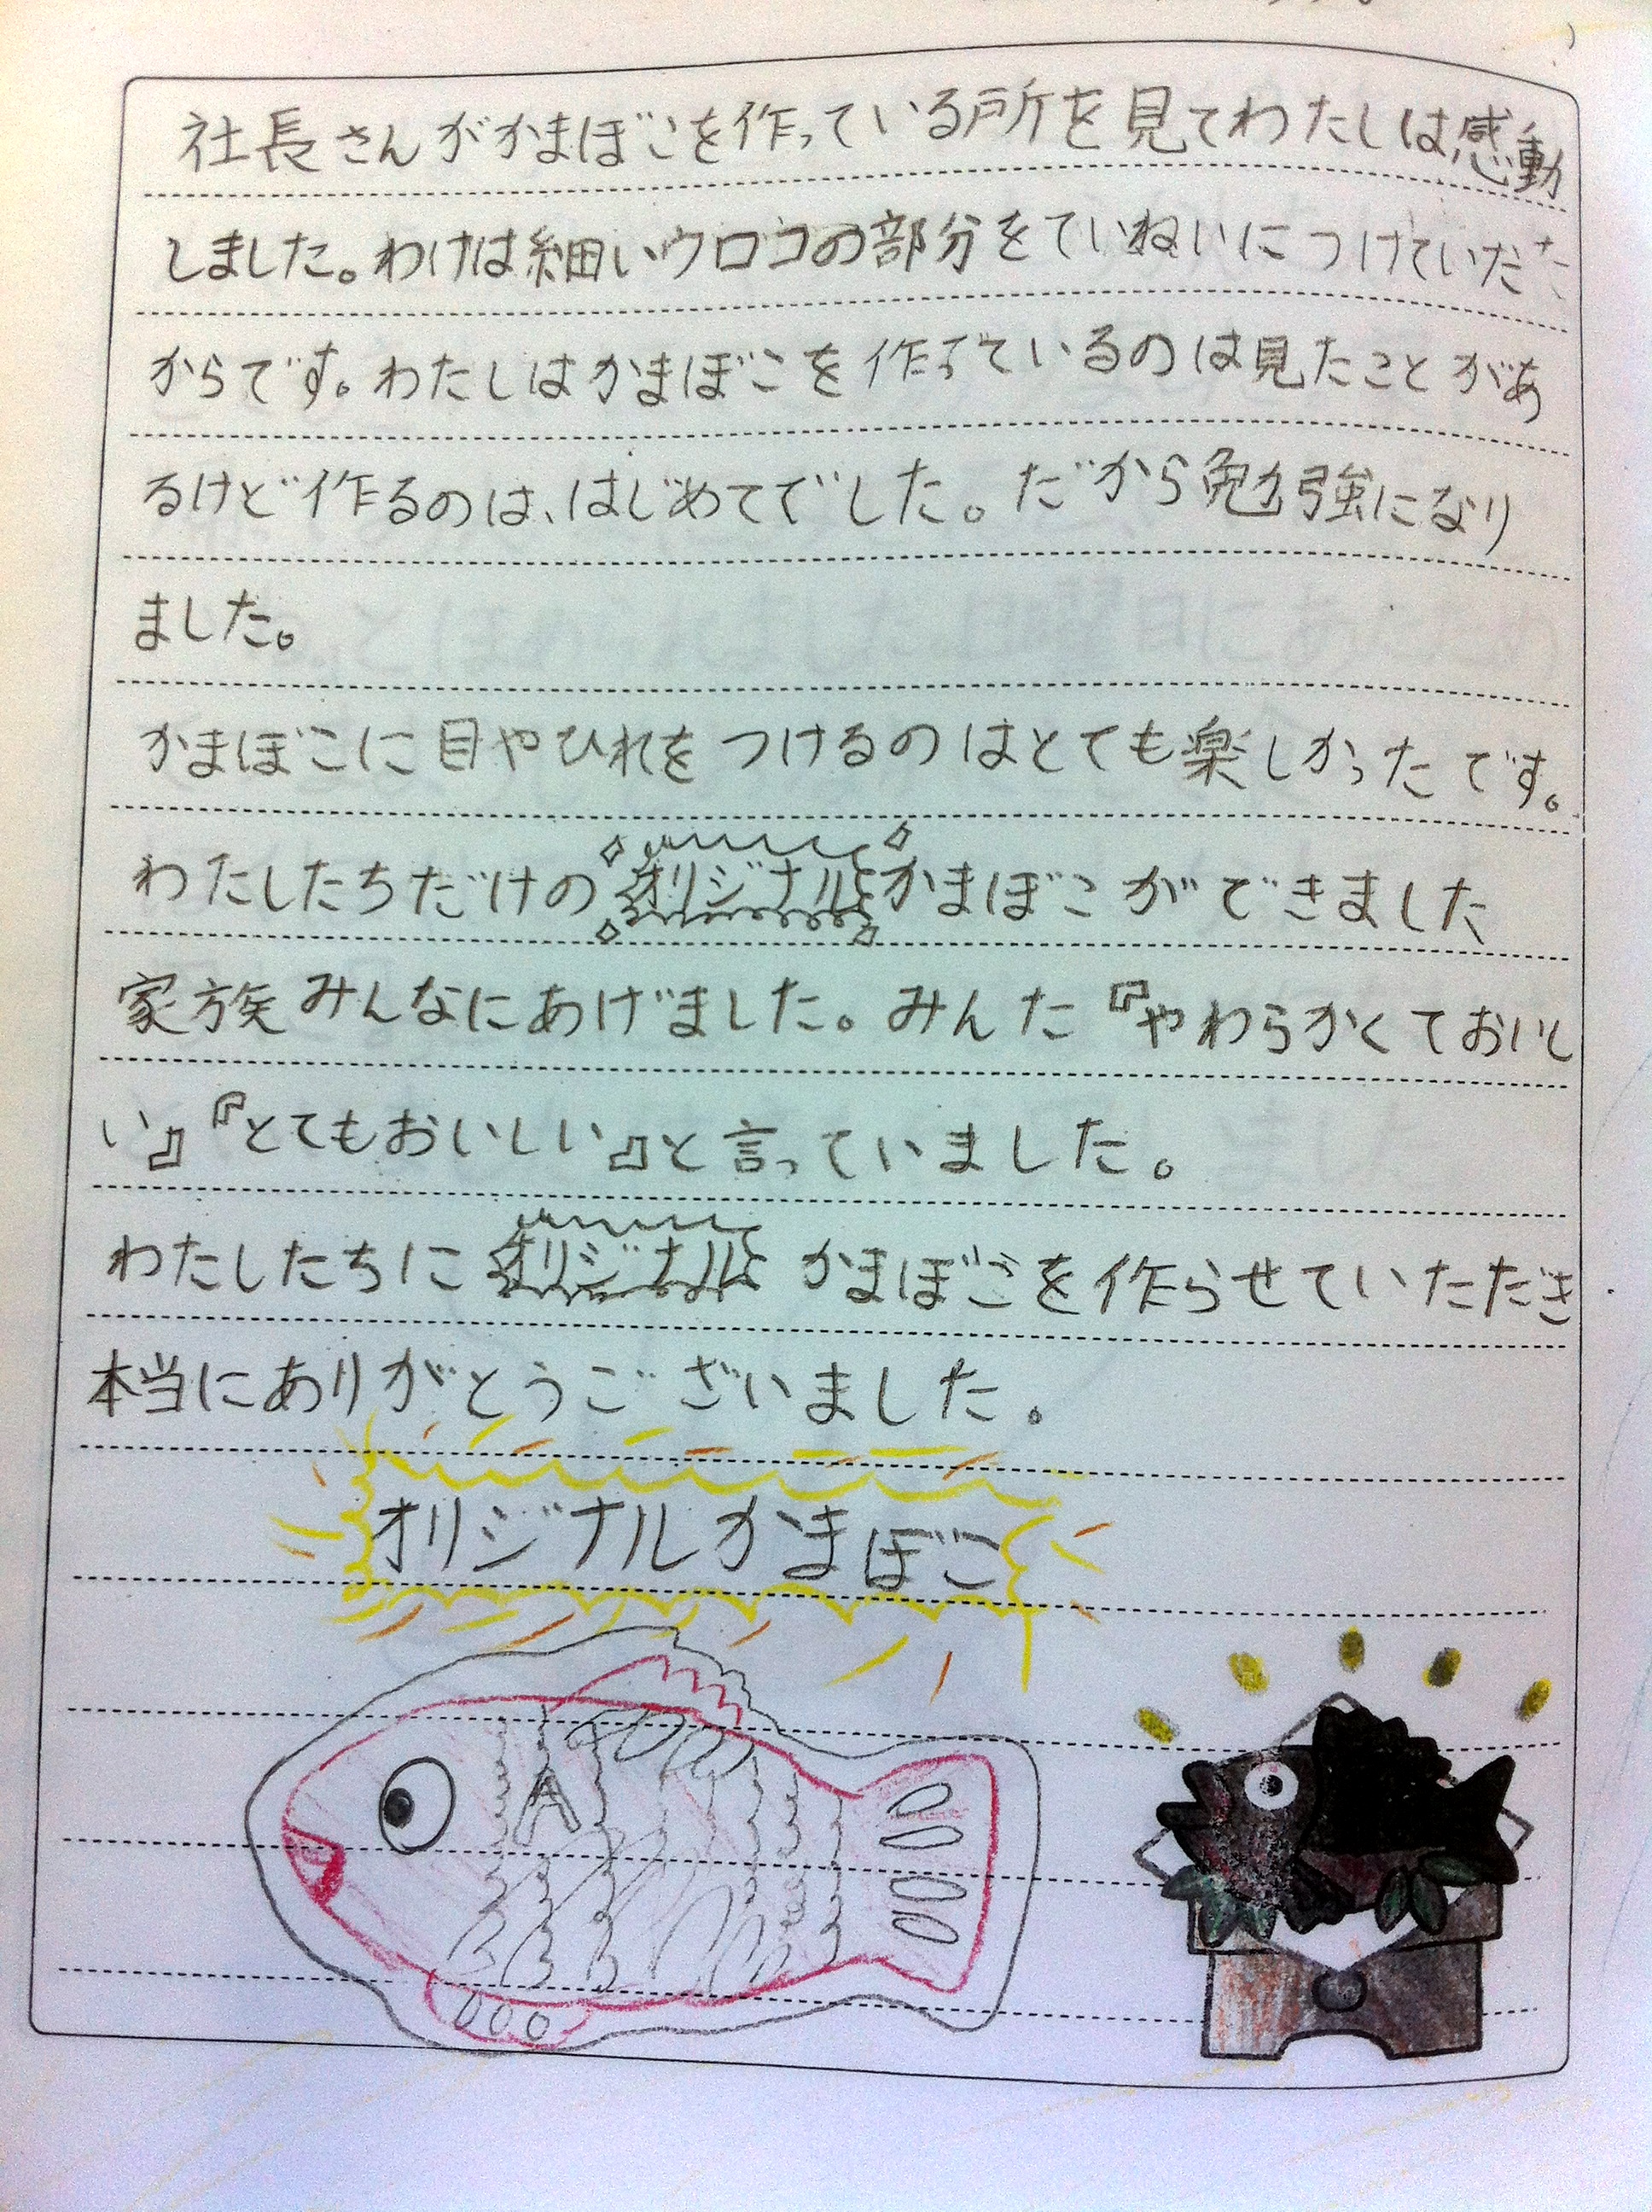 社長さんがかまぼこを作っている所を見てわたしは感動
しました。わけは細いウロコの部分をていねいにつけていたた
からです。わたしはかまぼこを作っているのは見たことがあ
るけど作るのは、はじめてでした。だから勉強になり
ました。
かまぼこに目やひれをつけるのはとても楽しかったです。
わたしたちだけのオリジナルかまぼこができました
家族みんなにあげました。みんた『やわらかくておいし
い』『とてもおいしい』と言っていました。
わたしたちにオリジナルかまぼこを作らせていただき
本当にありがとうございました。
オリジナルかまぼこ
A